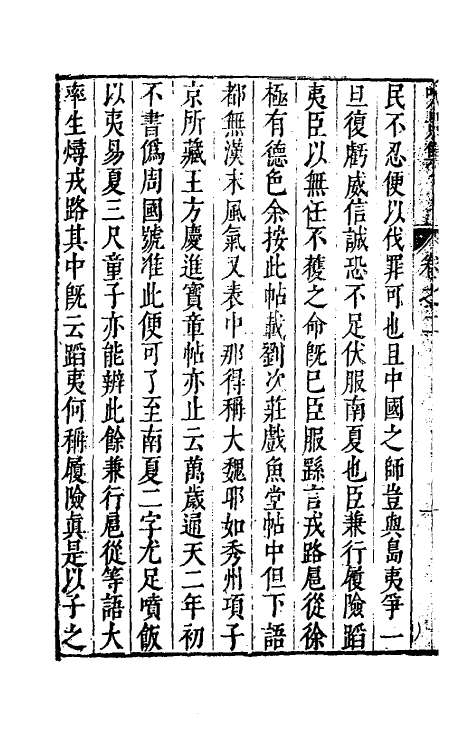 民不忍便以伐罪可也且中國之師豈與島夷爭一
旦復虧威信誠恐不足伏服南夏也臣兼行履險蹈
夷臣以無任不獲之命旣已臣服繇言戎路扈從徐
極有德色余按此帖載劉次莊戲魚堂帖中但下語
都無漢末風氣又表中那得稱大魏耶如秀州項子
京所藏王方慶進寶章帖亦止云萬歲通天二年初
不書僞周國號准此便可了至南夏二字尤足噴飯
以夷易夏三尺童子亦能辨此餘兼行扈從等語大
率生燖戎路其中旣云蹈夷何稱履險眞是以子之
卷之二